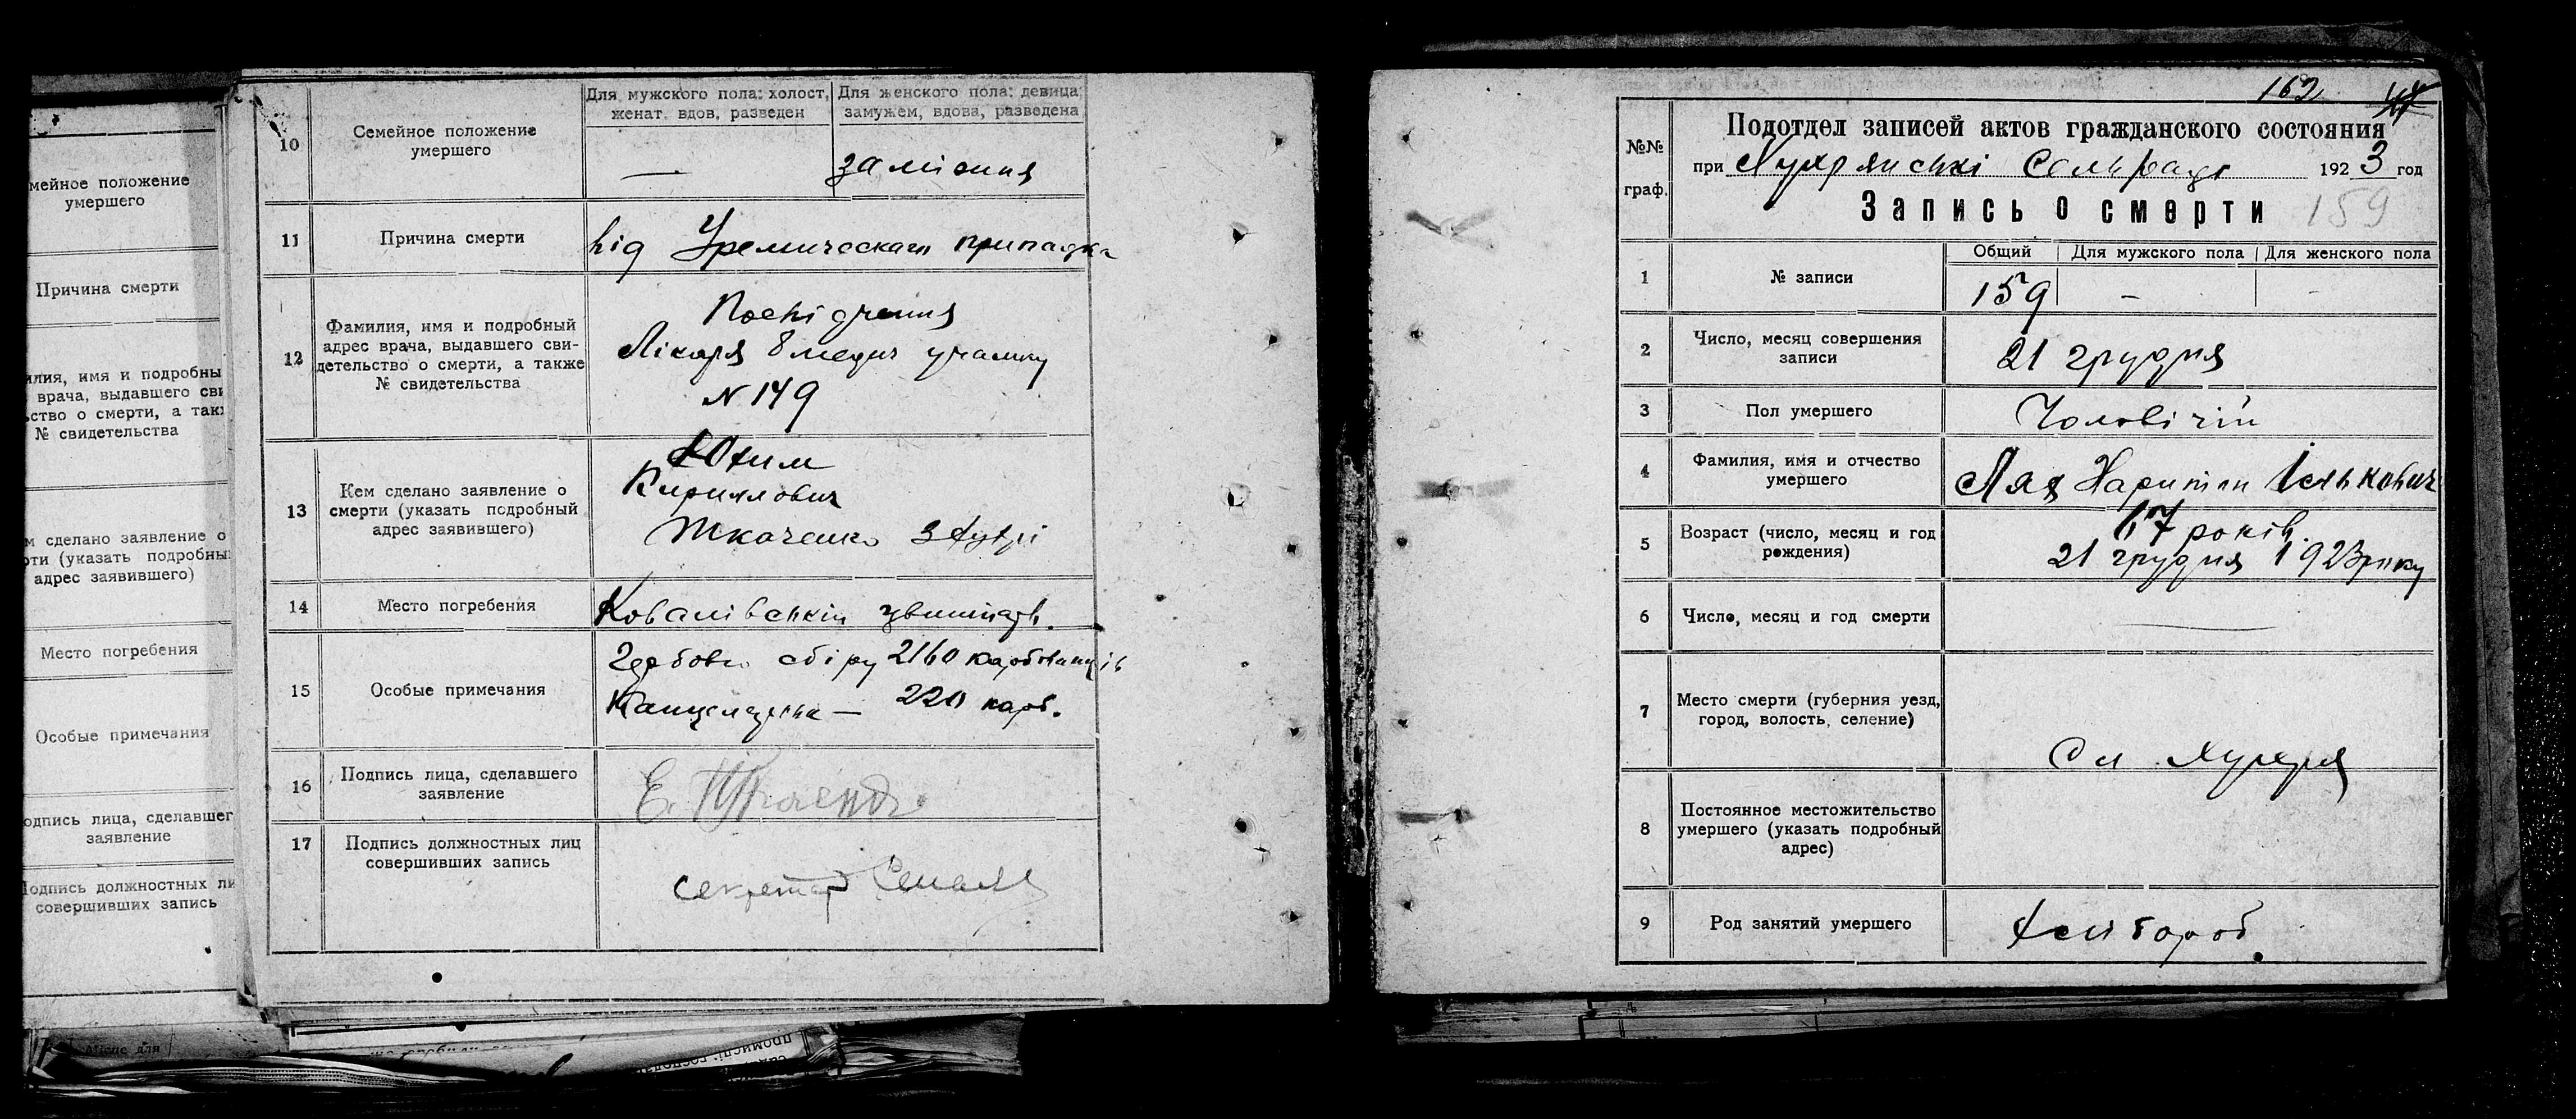 мейное положение
умершего
Причина смерти
илия, имя и подробны
врача, выдавшего сви
ство о смерти, а такж
№ свидетельства
м сделано заявление о
рти (указать подробны
адрес заявившего)
Место погребения
Особые примечания
одпись лица, сделавшег
заявление
Подпись должностных ли
совершивших запись
10
Семейное положение
умершего
Для мужского пола: холост,
женат, вдов, разведен
Для женского пола: девица,
замужем, вдова, разведена
—
заміжня
11
Причина смерти
від Уремическаго припадка
12
Фамилия, имя и подробный
адрес врача, выдавшего сви-
детельство о смерти, а также
№ свидетельства
Посвідчення
Лікаря 8 медич участку
N 149
13
Кем сделано заявление о
смерти (указать подробный
адрес заявившего)
Юхим
Кирилович
Ткаченко з Хутрі
14
Место погребения
Ковалівськім цвинтарі.
15
Особые примечания
Гербово збіру 2160 карбованців
Канцелярська — 220 карб.
16
Подпись лица, сделавшего
заявление
Е. Ткаченко
17
Подпись должностных лиц
совершивших запись
секретарь
162
№№
граф.
Подотдел записей актов гражданского состояния
при Сельраді 1923 год
Запись о смерти 159
1
№ записи
Общий
Для мужского пола
Для женского пола
159
–
-
2
Число, месяц совершения
записи
21 грудня
3
Пол умершего
Чоловічій
4
Фамилия, имя и отчество
умершего
Харитон Ількович
5
Возраст (число, месяц и год
рождения)
17 років
21 грудня 1923 року
6
Число, месяц и год смерти
—
7
Место смерти (губерния уезд,
город, волость, селение)
Сл
8
Постоянное местожительство
умершего (указать подробный
адрес)
9
Род занятий умершего
Хлібороб.